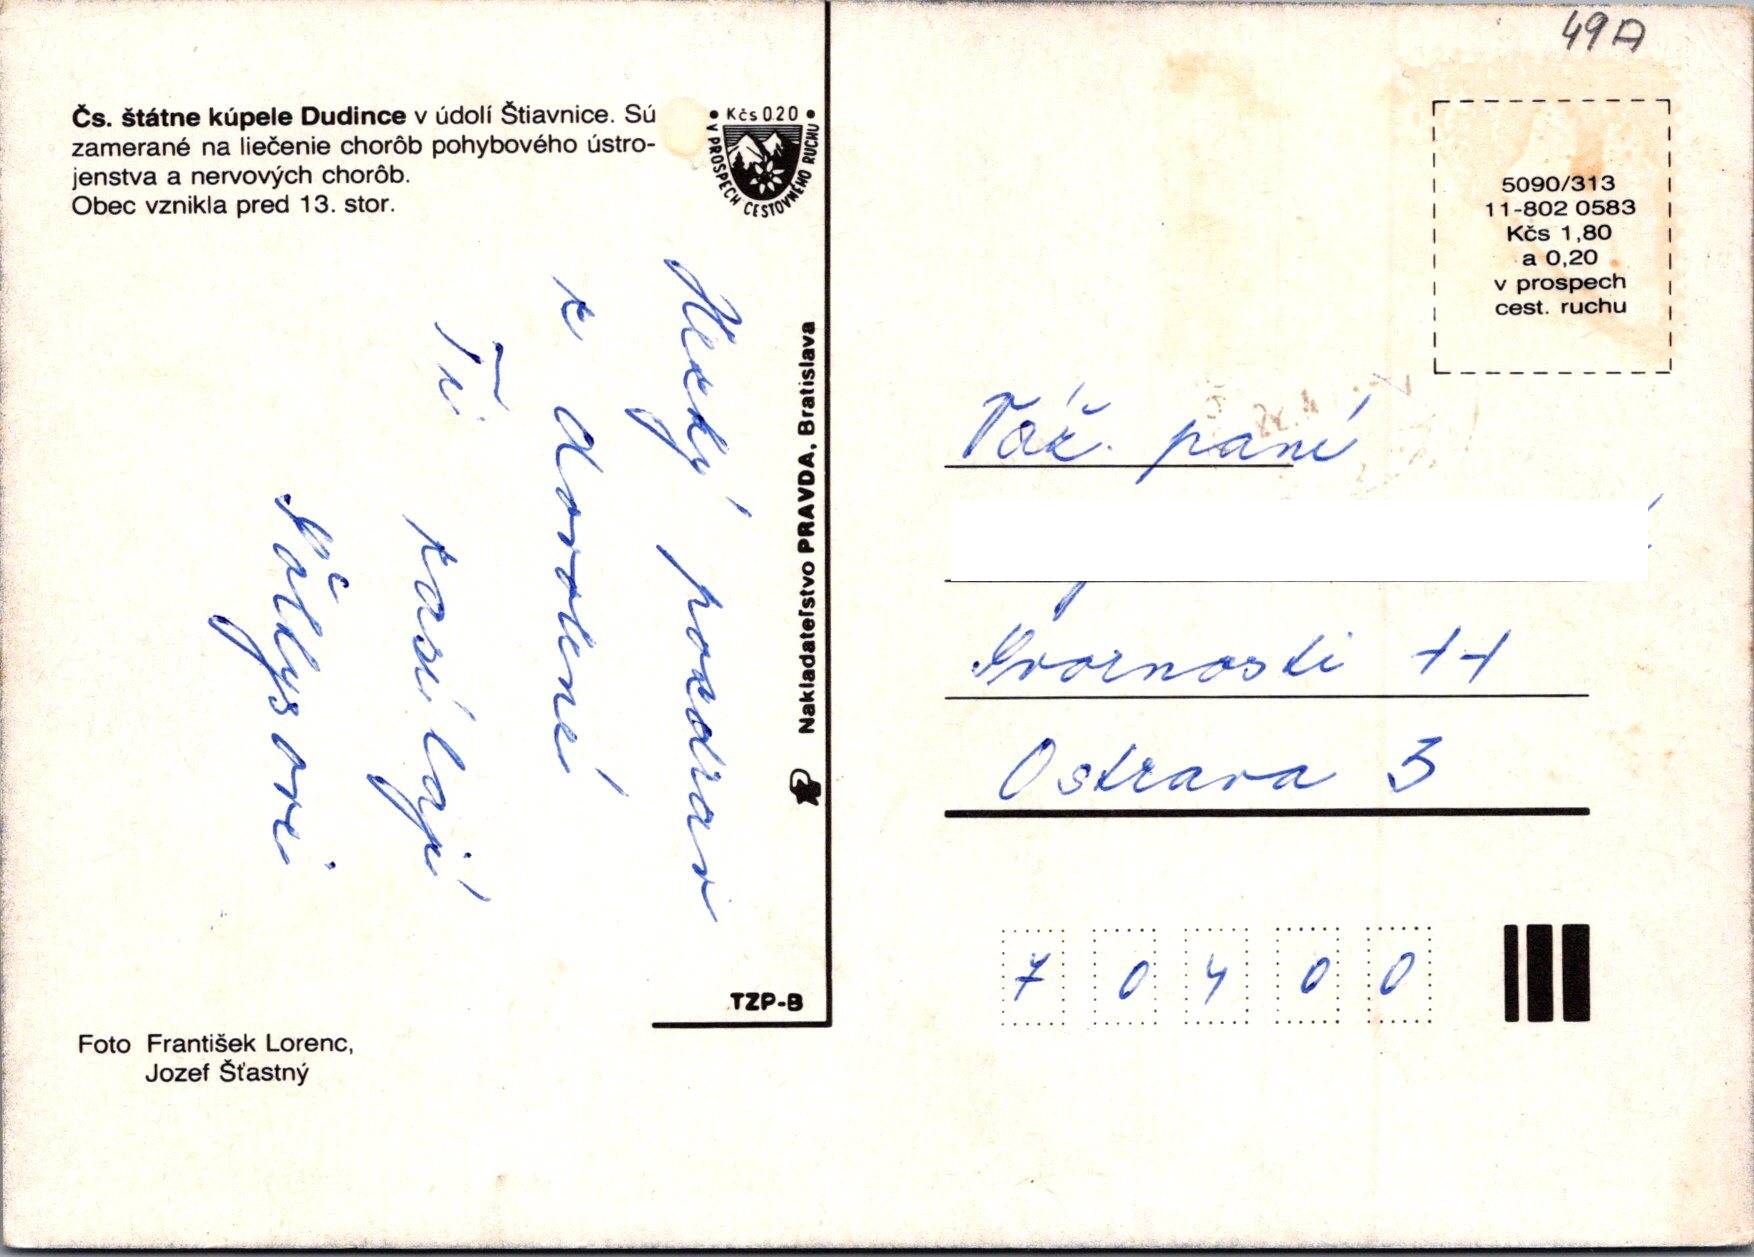 49A
Čs. štátne kúpele Dudince v údolí Štiavnice. Sú
zamerané na liečenie chorôb pohybového ústro-
jenstva a nervových chorôb.
Obec vznikla pred 13. stor.
Kčs 0.20
V PROSPECH CESTOVNÉHO RUCHU
Hezký pozdrav
z dovolené
Ti
zasílají
Nakladateľstvo PRAVDA, Bratislava
TZP-B
Foto František Lorenc,
Jozef Šťastný
5090/313
11-802 0583
Kčs 1,80
a 0,20
v prospech
cest. ruchu
Váž. paní
Svornosti 11
Ostrava 3
70400